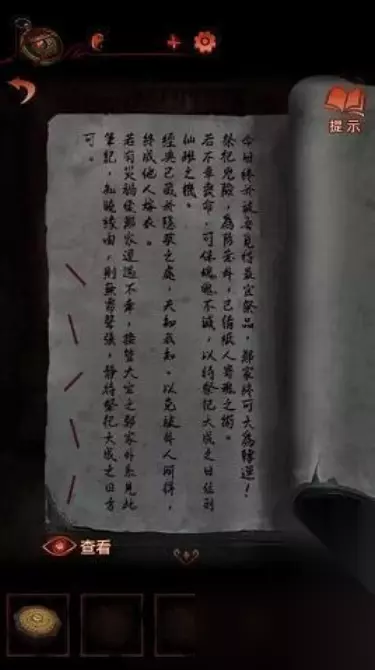 提示
今日終於被吾覓得最宜祭品，鄭家終可大為轉運！
祭祀兇險，為防意外，已借紙人寄魂之術。
若不幸喪命，可保魂魄不滅，以待祭祀大成之日位列
仙班之機。
經典已藏於隱蔽之處，天知我知。以免被外人聞得，
終成他人嫁衣。
若有災禍使鄭家遭遇不幸，接管大宅之鄭家外系見此
筆記，知曉緣由，則無需聲張，靜待祭祀大成之日方
可。
查看